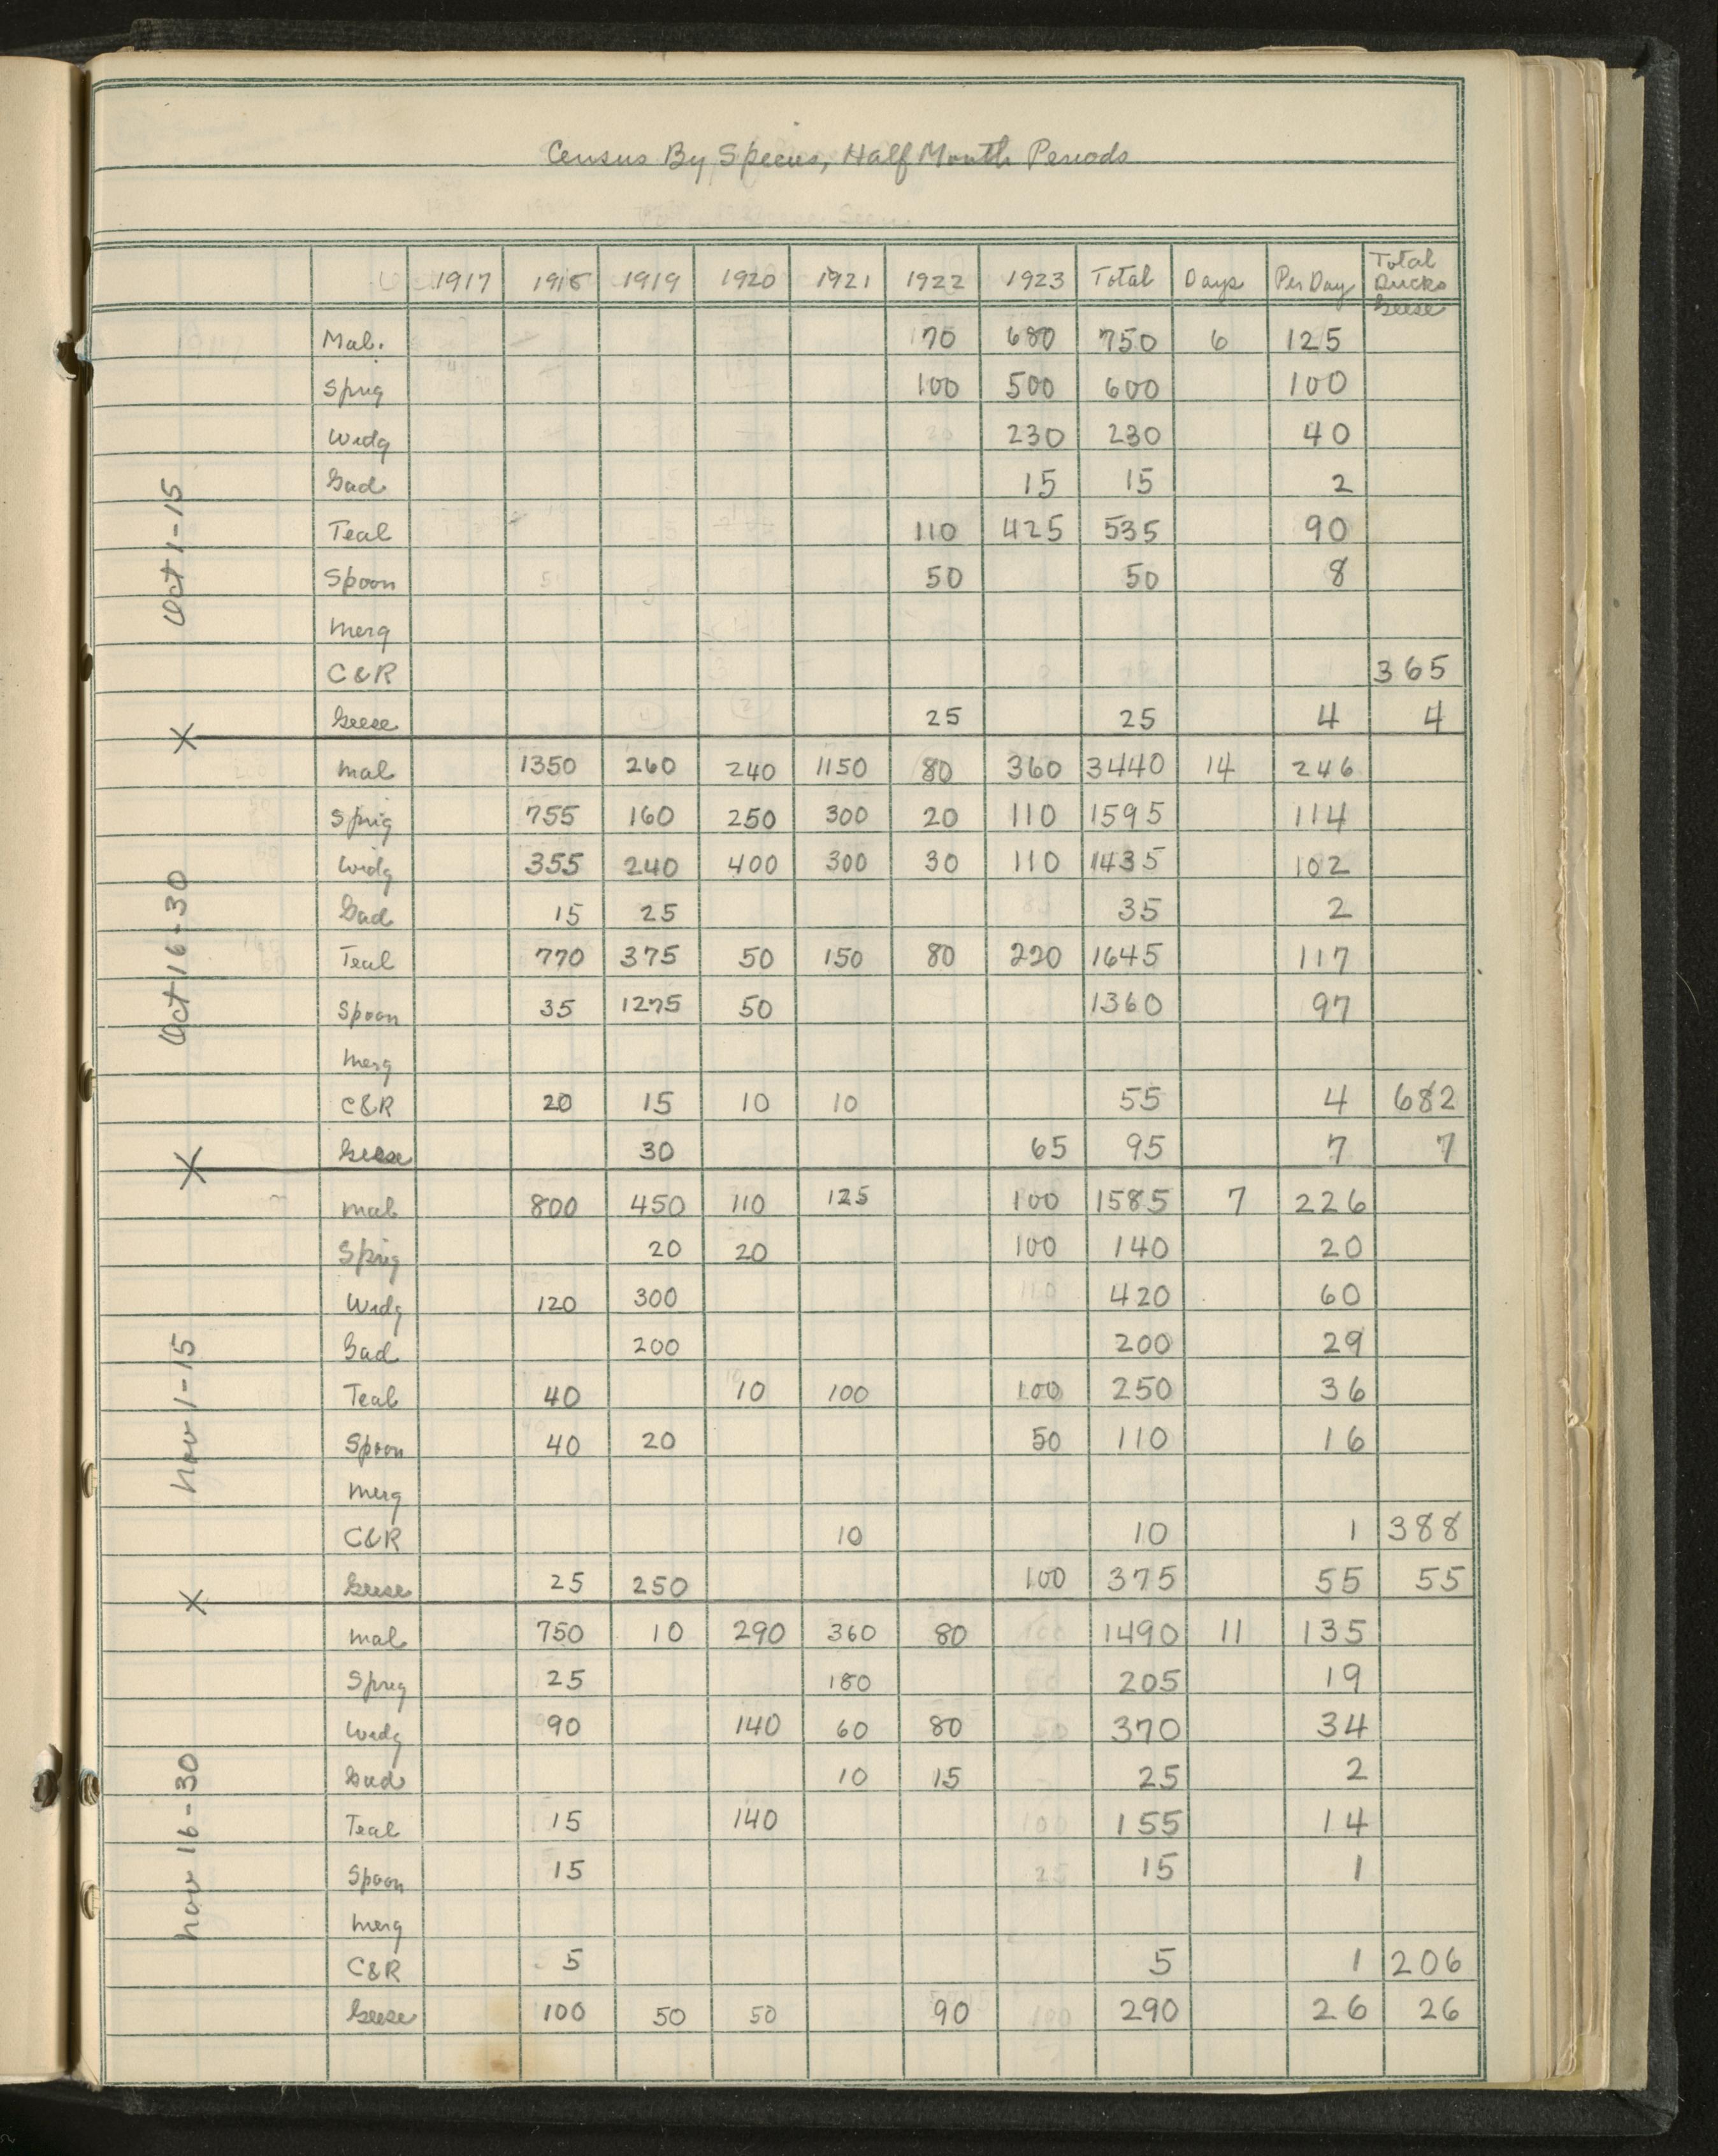 Census By Species, Half Month Periods
1917 1918 1919 1920 1921 1922 1923 Total Days Per Day Total Ducks Geese
Oct 1-15
Mal. 70 680 750 6 125
Sprig 100 500 600 100
Widg 230 230 40
Gad 15 15 2
Teal 110 425 535 90
Spoon 50 50 8
Merg
C&R 365
Geese 25 25 4 4
X
Oct 16-30
Mal 1350 260 240 1150 80 360 3440 14 246
Sprig 755 160 250 300 20 110 1595 114
Widg 355 240 400 300 30 110 1435 102
Gad 15 25 35 2
Teal 770 375 50 150 80 220 1645 117
Spoon 35 1275 50 1360 97
Merg
C&R 20 15 10 10 55 4 682
Geese 30 65 95 7 7
X
Nov 1-15
Mal 800 450 110 125 100 1585 7 226
Sprig 20 20 100 140 20
Widg 120 300 420 60
Gad 200 200 29
Teal 40 10 100 100 250 36
Spoon 40 20 50 110 16
Merg
C&R 10 10 1 388
Geese 25 250 100 375 55 55
X
Nov 16-30
Mal 750 10 290 360 80 1490 11 135
Sprig 25 180 205 19
Widg 90 140 60 80 370 34
Gad 10 15 25 2
Teal 15 140 155 14
Spoon 15 15 1
Merg
C&R 5 5 1 206
Geese 100 50 50 90 290 26 26